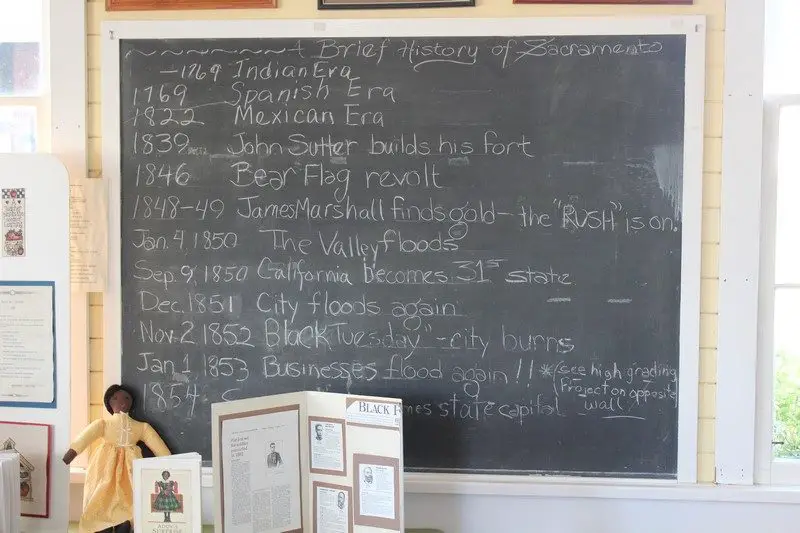 A Brief History of Sacramento
-1769 Indian Era
1769 Spanish Era
1822 Mexican Era
1839 John Sutter builds his fort
1846 Bear Flag revolt
1848-49 James Marshall finds gold - the "RUSH" is on.
Jan. 4, 1850 The Valley floods
Sep. 9, 1850 California becomes 31st state
Dec. 1851 City floods again
Nov. 2 1852 Black Tuesday" - city burns
Jan 1 1853 Businesses flood again!! *(see high grading
Project on opposite
wall)
1854 S mes state capitol
BLACK